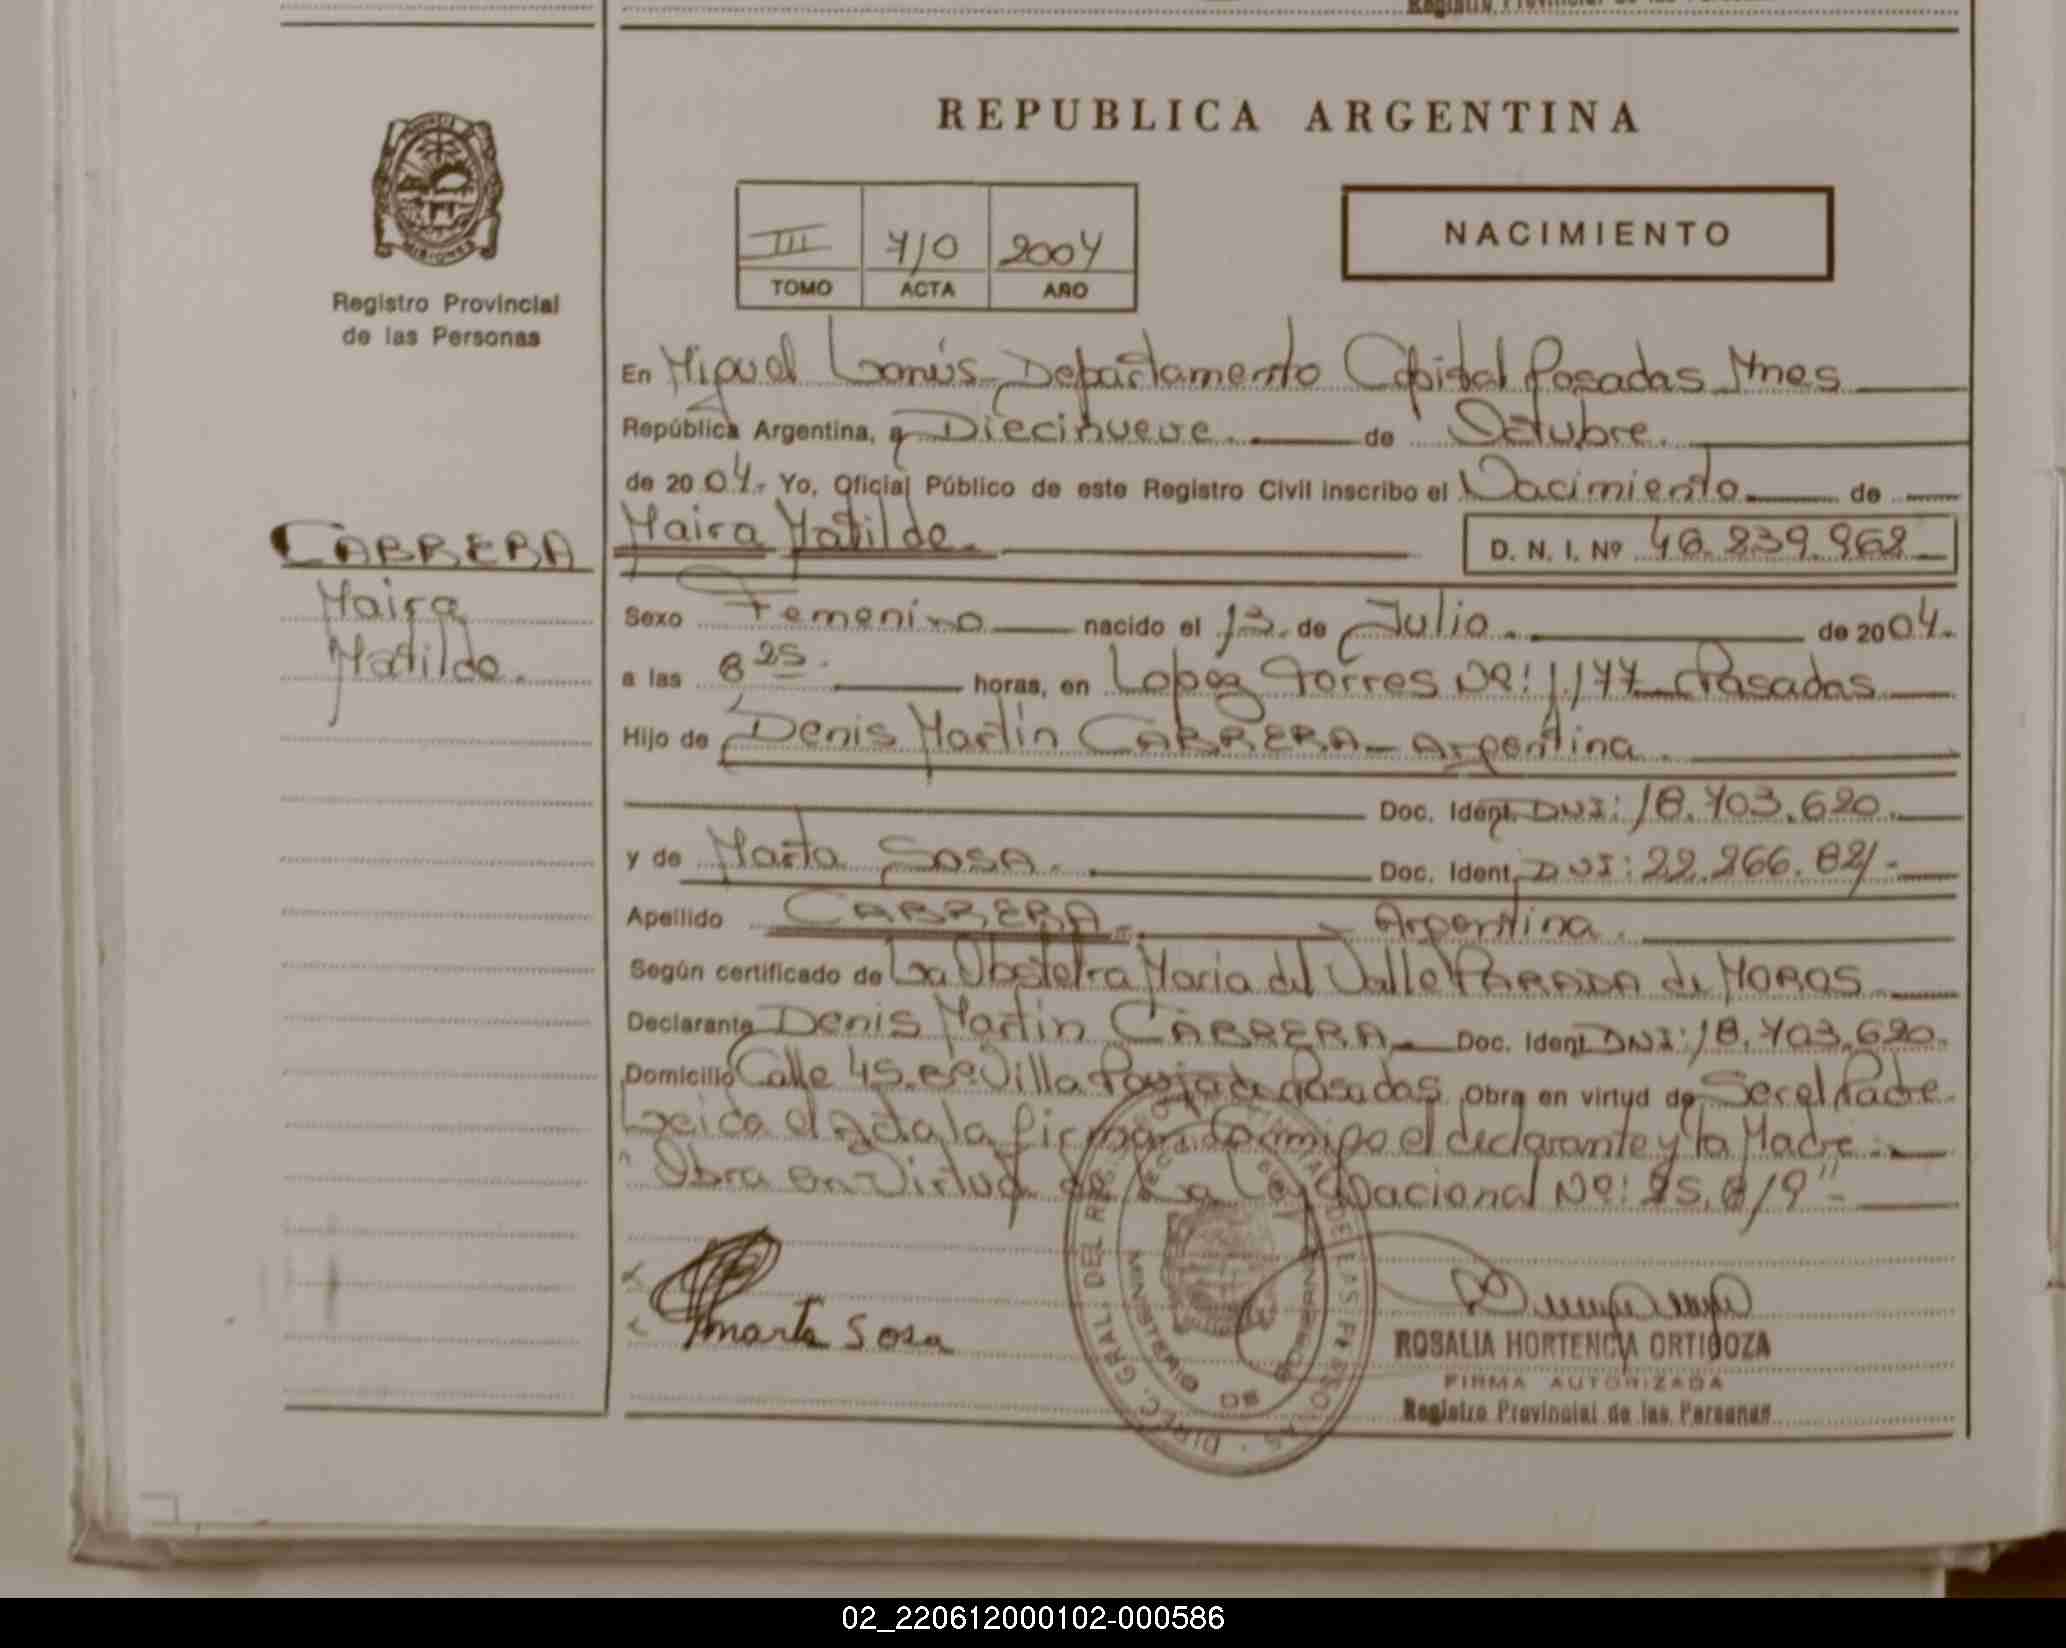 REPUBLICA ARGENTINA
NACIMIENTO
III 410 2004
TOMO ACTA AÑO
Registro Provincial
de las Personas
En Miguel Lanús Departamento Capital Posadas Mnes
República Argentina, a Diecinueve. de Octubre.
de 2004. Yo, Oficial Público de este Registro Civil inscribo el Nacimiento de
CABRERA
Maira
Matilde.
Maira Matilde. D. N. I. Nº 46.239.962
Sexo Femenino nacido el 13. de Julio. de 2004.
a las 8 25. horas, en Lopez Torres Nº: 1.177 Posadas
Hijo de Denis Martín CABRERA - Argentina.
Doc. Ident. DNI: 18.403.620.
y de Marta SOSA. Doc. Ident. DNI: 22.266.821-
Apellido CABRERA. Argentina.
Según certificado de La Obstetra Maria del Valle PARADA de MOROS
Declarante Denis Martin CABRERA. Doc. Ident DNI: 18.403.620.
Domicilio Calle 45. Villa Posadas Obra en virtud de Ser el Padre.
Leida el Acta la firman conmigo el declarante y la Madre.-
"Obra en Virtud de La Ley Nacional Nº: 25.819"-
Marta Sosa
ROSALIA HORTENCIA ORTIGOZA
FIRMA AUTORIZADA
Registro Provincial de las Personas
02_220612000102-000586